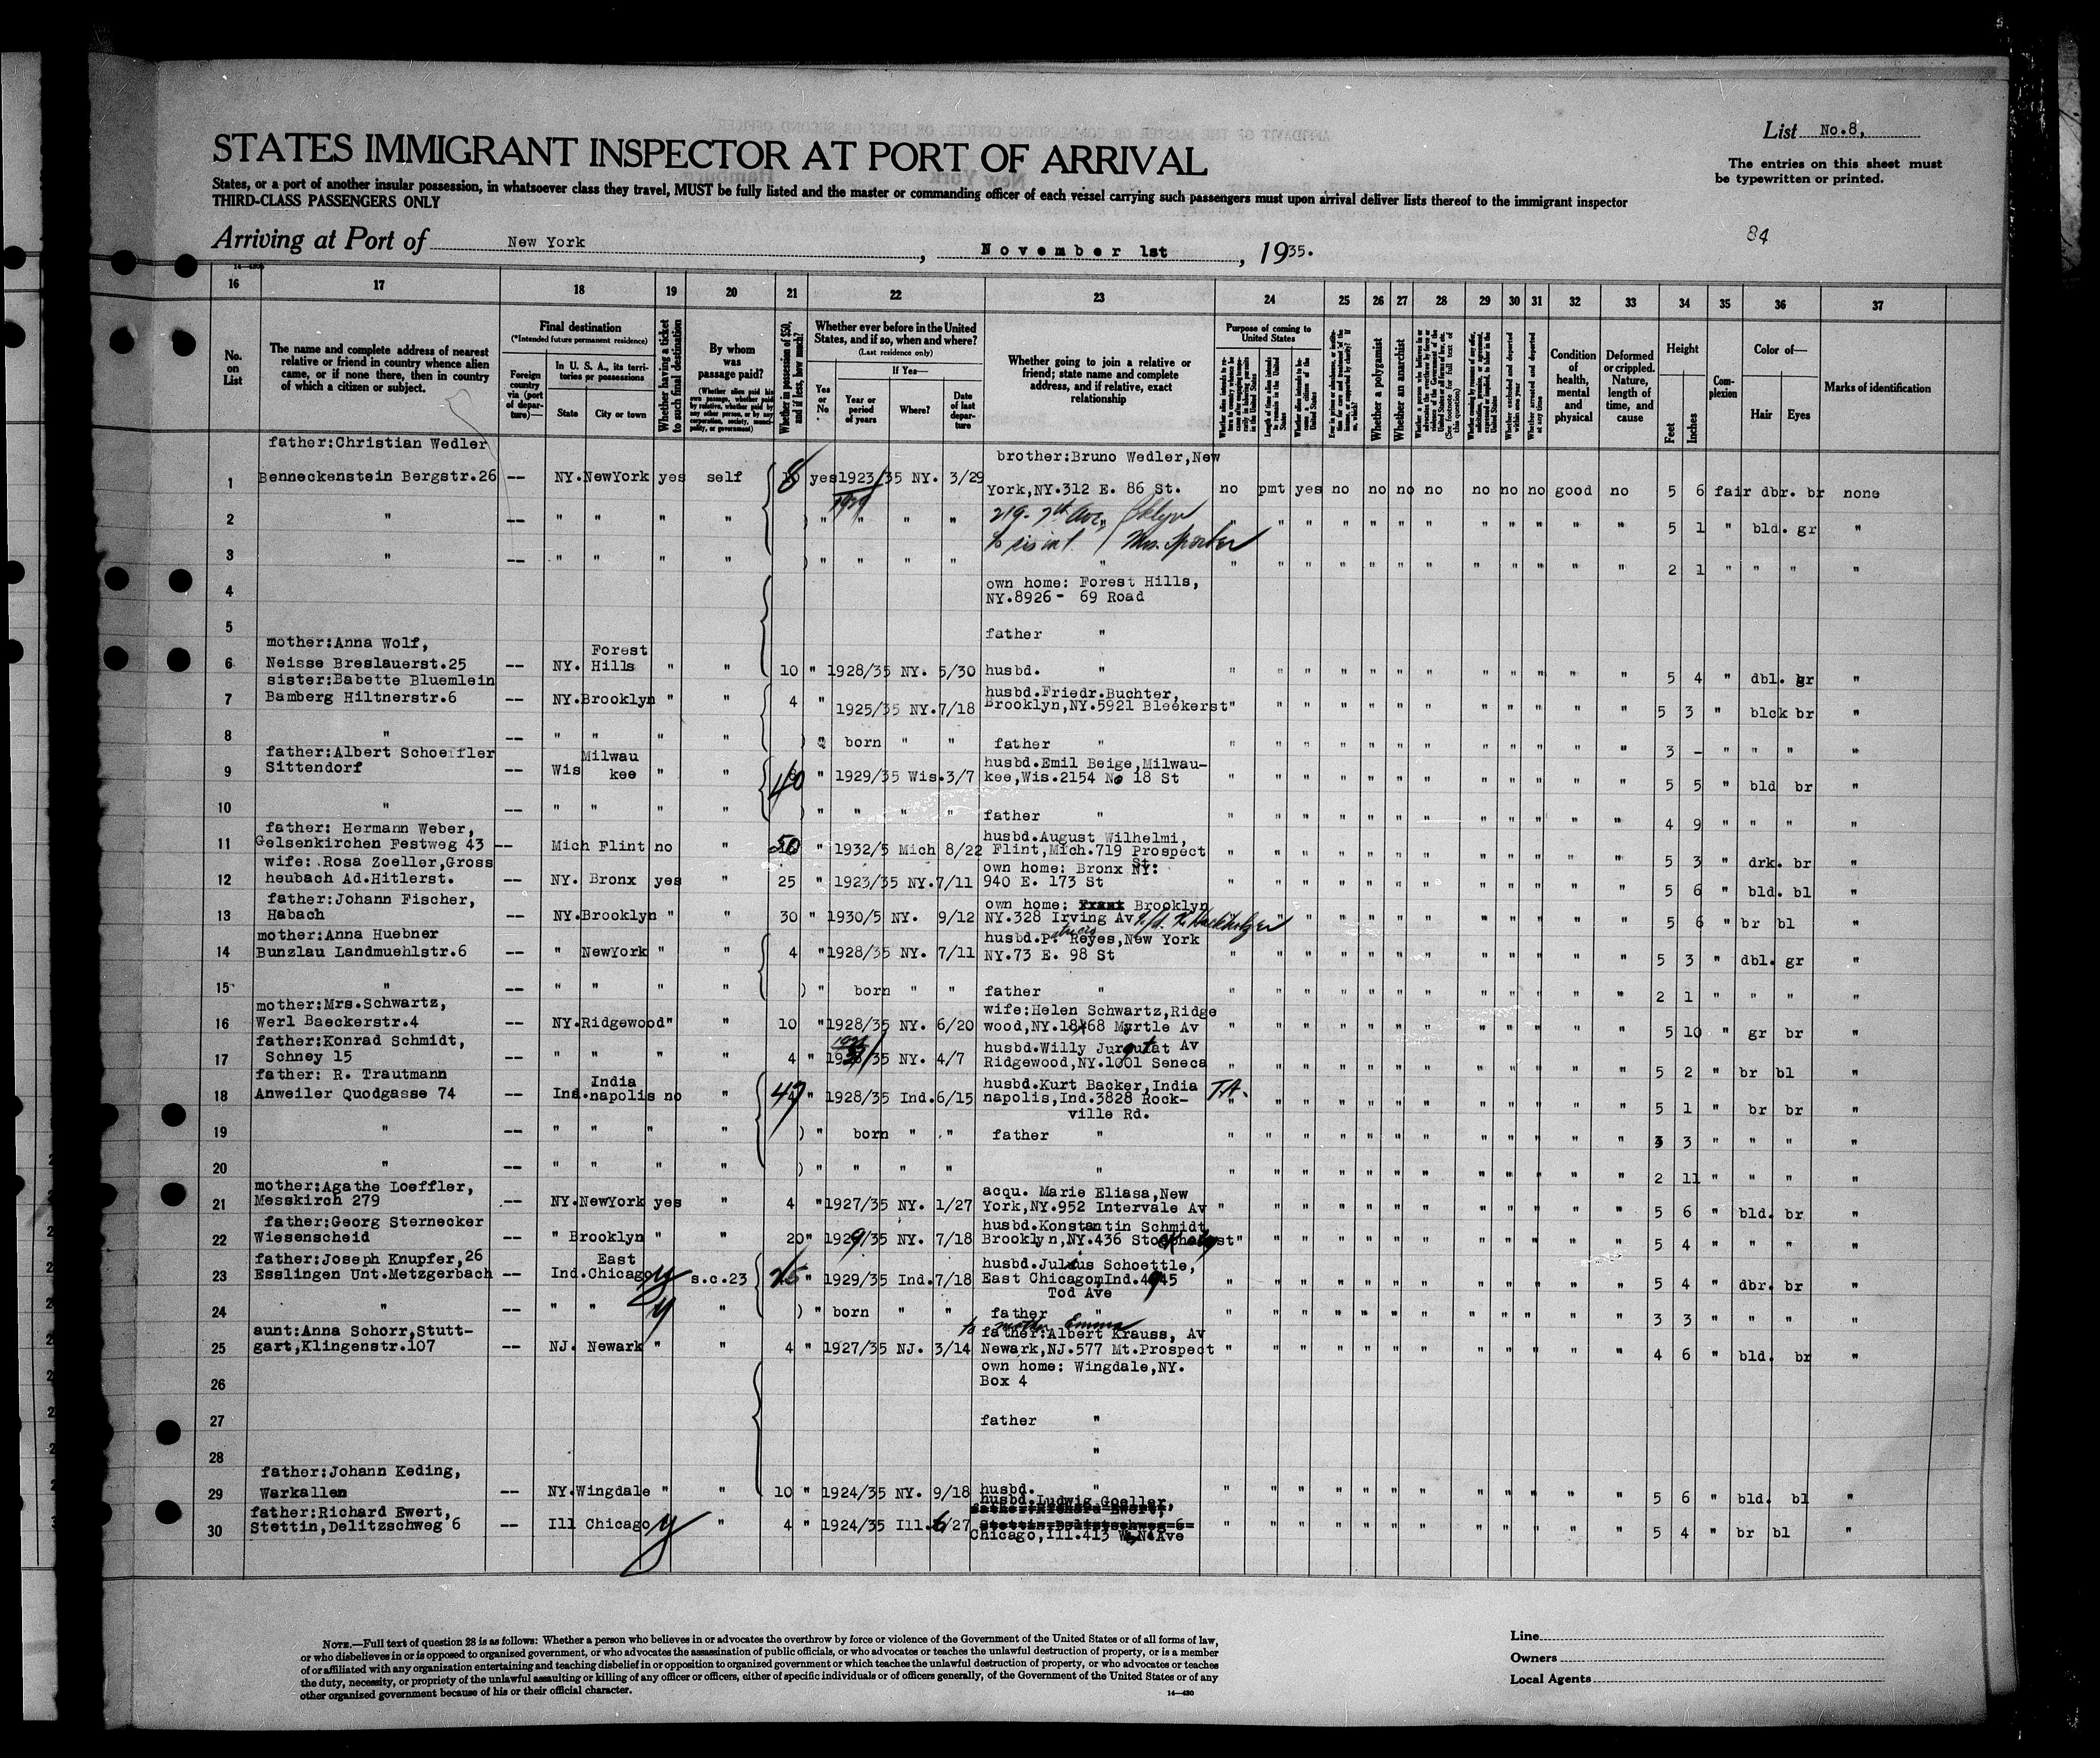 List No.8,
STATES IMMIGRANT INSPECTOR AT PORT OF ARRIVAL
The entries on this sheet must
be typewritten or printed.
States, or a port of another insular possession, in whatsoever class they travel, MUST be fully listed and the master or commanding officer of each vessel carrying such passengers must upon arrival deliver lists thereof to the immigrant inspector
THIRD-CLASS PASSENGERS ONLY
84
Arriving at Port of New York, November 1st, 1935.
16 17 18 19 20 21 22 23 24 25 26 27 28 29 30 31 32 33 34 35 36 37
No. on List
The name and complete address of nearest relative or friend in country whence alien came, or if none there, then in country of which a citizen or subject.
Final destination
(*Intended future permanent residence)
Foreign country via (port of departure)—
In U. S. A., its territories or possessions
State City or town
Whether having a ticket to such final destination
By whom was passage paid?
(Whether alien paid his own passage, whether paid by relative, whether paid by any other person, or by any corporation, society, municipality, or government)
Whether in possession of $50, and if less, how much?
Whether ever before in the United States, and if so, when and where?
(Last residence only)
Yes or No
If Yes—
Year or period of years Where? Date of last departure
Whether going to join a relative or friend; state name and complete address, and if relative, exact relationship
Purpose of coming to United States
Whether a polygamist
Whether an anarchist
Condition of health, mental and physical
Deformed or crippled. Nature, length of time, and cause
Height
Feet Inches
Complexion
Color of—
Hair Eyes
Marks of identification
father:Christian Wedler brother:Bruno Wedler,New
1 Benneckenstein Bergstr.26 -- NY.NewYork yes self 8 yes 1923/35 NY. 3/29 York,NY.312 E. 86 St. no pmt yes no no no no no no no good no 5 6 fair dbr. br none
1929
2 " -- " " " " ) " " " " 219-7th Ave, Bklyn " " " " " " " " " " " " 5 1 " bld. gr "
3 " -- " " " " ) " " " " " " " " " " " " " " " " " 2 1 " " " "
4 own home: Forest Hills,
NY.8926- 69 Road
5 father "
mother:Anna Wolf, Forest
6 Neisse Breslauerst.25 -- NY. Hills " " 10 " 1928/35 NY. 5/30 husbd. " " " " " " " " " " " " " 5 4 " dbl. gr "
sister:Babette Bluemlein husbd.Friedr.Buchter,
7 Bamberg Hiltnerstr.6 -- NY.Brooklyn " " 4 " 1925/35 NY.7/18 Brooklyn,NY.5921 Bleekerst " " " " " " " " " " " " 5 3 " blck br "
8 " -- " " " " ) " born " " father " " " " " " " " " " " " " 3 - " " " "
father:Albert Schoeffler Milwau husbd.Emil Beige,Milwau-
9 Sittendorf -- Wis kee " " 40 " 1929/35 Wis.3/7 kee,Wis.2154 No 18 St " " " " " " " " " " " " 5 5 " bld br "
10 " -- " " " " ) " " " " father " " " " " " " " " " " " " 4 9 " " " "
father: Hermann Weber, husbd.August Wilhelmi,
11 Gelsenkirchen Festweg 43 -- Mich Flint no " 50 " 1932/5 Mich 8/22 Flint,Mich.719 Prospect St. " " " " " " " " " " " " 5 3 " drk. br "
wife: Rosa Zoeller,Gross own home: Bronx NY:
12 heubach Ad.Hitlerst. -- NY. Bronx yes " 25 " 1923/35 NY.7/11 940 E. 173 St " " " " " " " " " " " " 5 6 " bld. bl "
father:Johann Fischer, own home: Brooklyn
13 Habach -- NY.Brooklyn " " 30 " 1930/5 NY. 9/12 NY.328 Irving Av " " " " " " " " " " " 5 6 " br bl "
mother:Anna Huebner husbd.P. Reyes,New York
14 Bunzlau Landmuehlstr.6 -- " NewYork " " 4 " 1928/35 NY. 7/11 NY.73 E. 98 St " " " " " " " " " " " " 5 3 " dbl. gr "
15 " -- " " " " ) " born " " father " " " " " " " " " " " " " 2 1 " " " "
mother:Mrs.Schwartz, wife:Helen Schwartz,Ridge
16 Werl Baeckerstr.4 -- NY.Ridgewood " " 10 " 1928/35 NY. 6/20 wood,NY.1868 Myrtle Av " " " " " " " " " " " " 5 10 " gr br "
father:Konrad Schmidt, husbd.Willy Jurgutat Av
17 Schney 15 -- " " " " 4 " NY. 4/7 Ridgewood,NY.1001 Seneca " " " " " " " " " " " " 5 2 " br bl "
father: R. Trautmann India husbd.Kurt Backer,India T.A.
18 Anweiler Quodgasse 74 -- Ind.napolis no " 47 " 1928/35 Ind.6/15 napolis,Ind.3828 Rock- " " " " " " " " " " " " 5 1 " br br "
ville Rd.
19 " -- " " " " ) " born " " father " " " " " " " " " " " " " 3 3 " " " "
20 " -- " " " " ) " " " " " " " " " " " " " " " " " 2 11 " " " "
mother:Agathe Loeffler, acqu. Marie Eliasa,New
21 Messkirch 279 -- NY.NewYork yes " 4 " 1927/35 NY. 1/27 York,NY.952 Intervale Av " " " " " " " " " " " " 5 6 " bld. br "
father:Georg Sternecker husbd.Konstantin Schmidt
22 Wiesenscheid -- " Brooklyn " " 20 " 1929/35 NY. 7/18 Brooklyn,NY.436 " " " " " " " " " " " " 5 4 " " " "
father:Joseph Knupfer,26 East husbd.Julius Schoettle,
23 Esslingen Unt.Metzgerbach -- Ind.Chicago y s.c.23 25 " 1929/35 Ind.7/18 East Chicago,Ind.4945 " " " " " " " " " " " " 5 4 " dbr. br "
Tod Ave
24 " -- " " y " ) " born " " father " " " " " " " " " " " " " 3 3 " " " "
to mother Emma
aunt:Anna Schorr,Stutt- father:Albert Krauss, Av
25 gart,Klingenstr.107 -- NJ. Newark " " 4 " 1927/35 NJ. 3/14 Newark,NJ.577 Mt.Prospect " " " " " " " " " " " " 4 6 " bld. br "
26 own home: Wingdale,NY.
Box 4
27 father "
28 "
father:Johann Keding,
29 Warkallen -- NY.Wingdale " " 10 " 1924/35 NY. 9/18 husbd. " " " " " " " " " " " " " 5 6 " bld. bl "
father:Richard Ewert, husbd.Ludwig Goeller,
30 Stettin,Delitzschweg 6 -- Ill Chicago y " 4 " 1924/35 Ill.6/27 Chicago,Ill.413 Ave " " " " " " " " " " " " 5 4 " br bl "
NOTE.—Full text of question 28 is as follows: Whether a person who believes in or advocates the overthrow by force or violence of the Government of the United States or of all forms of law,
or who disbelieves in or is opposed to organized government, or who advocates the assassination of public officials, or who advocates or teaches the unlawful destruction of property, or is a member
of or affiliated with any organization entertaining and teaching disbelief in or opposition to organized government or which teaches the unlawful destruction of property, or who advocates or teaches
the duty, necessity, or propriety of the unlawful assaulting or killing of any officer or officers, either of specific individuals or of officers generally, of the Government of the United States or of any
other organized government because of his or their official character.
14—430
Line
Owners
Local Agents